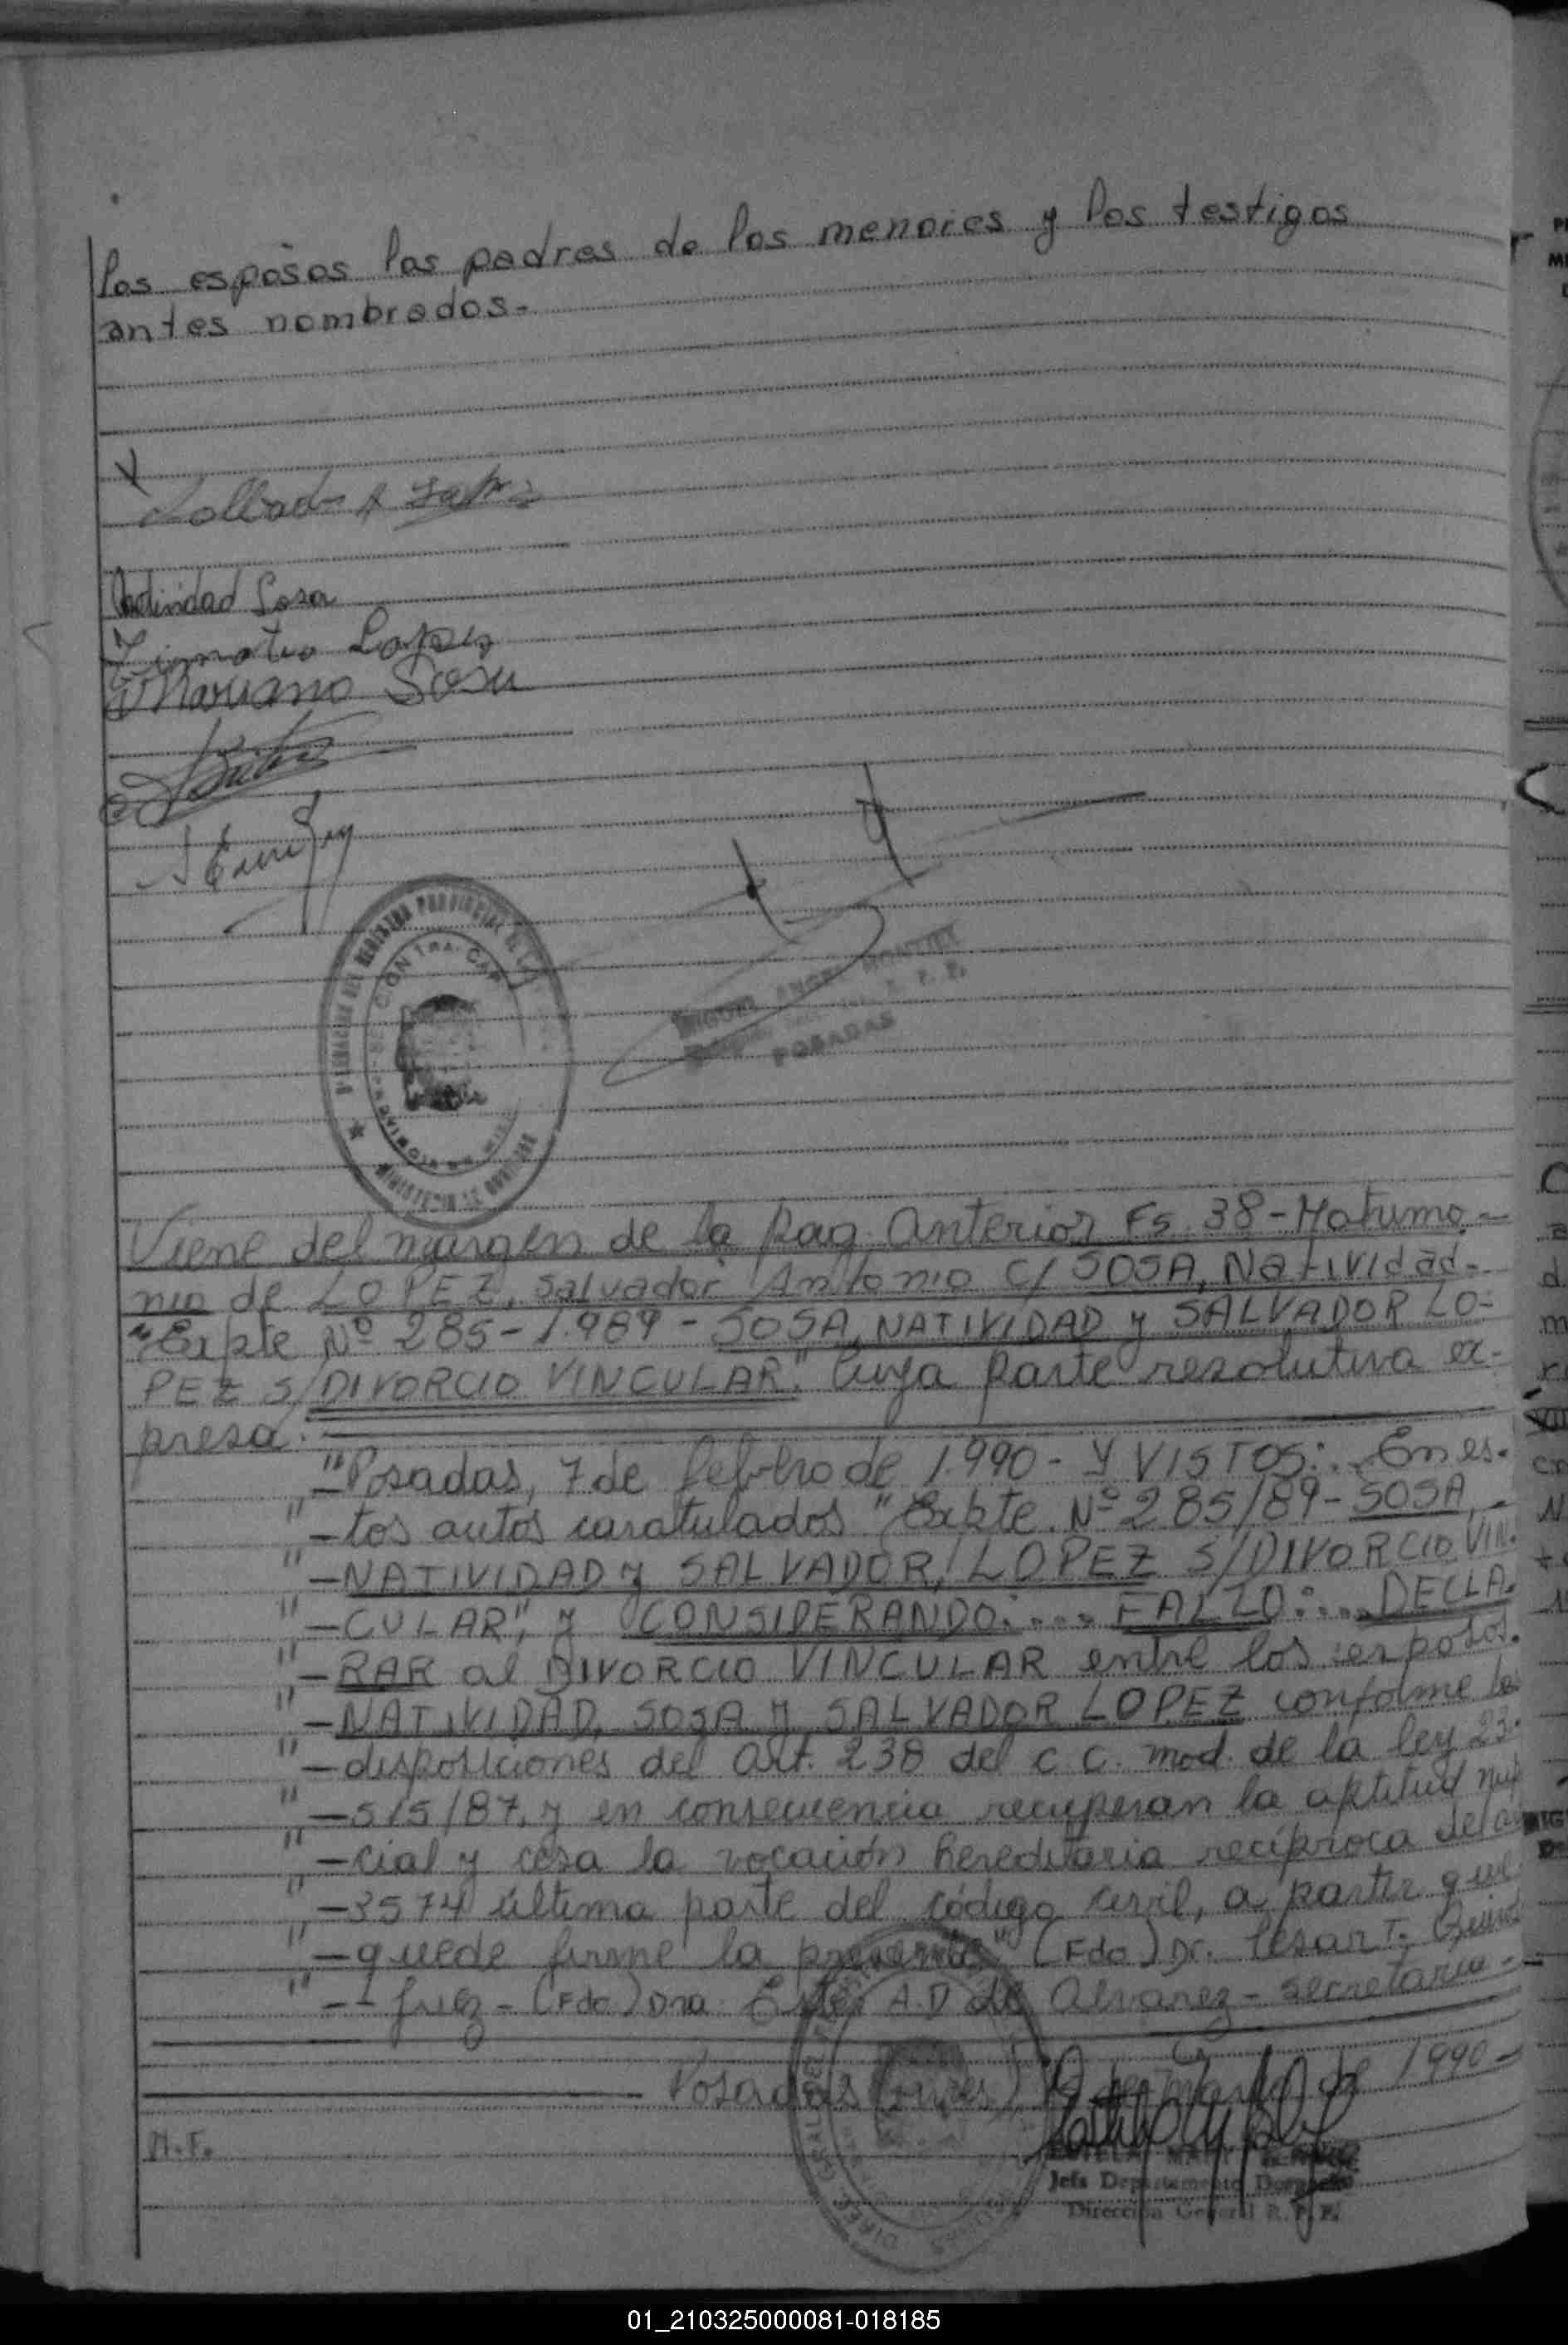 los esposos los padres de los menores y los testigos
antes nombrados.-
Natividad Sosa
Lopez
Mariano Sosa
CONTRA. CAP.
POSADAS
Viene del margen de la pag. anterior Fs. 38 - Matrimo-
nio de LOPEZ, Salvador Antonio C/ SOSA, Natividad.-
"Expte Nº 285-1.989 - SOSA, NATIVIDAD y SALVADOR LO-
PEZ S/DIVORCIO VINCULAR". Cuya parte resolutiva ex-
presa:
"-Posadas, 7 de febrero de 1.990 - Y VISTOS:.. En es-
"-tos autos caratulados "Expte. Nº 285/89 - SOSA,-
"-NATIVIDAD y SALVADOR, LOPEZ S/DIVORCIO VIN-
"-CULAR", y CONSIDERANDO:.... FALLO:.... DECLA-
"-RAR al DIVORCIO VINCULAR entre los esposos.
"-NATIVIDAD, SOSA Y SALVADOR LOPEZ conforme las
"-disposiciones del art. 238 del C.C. mod. de la ley 23.
"-515/87, y en consecuencia recuperan la aptitud nup
"-cial y cesa la vocación hereditaria recíproca del a
"-3574 última parte del código civil, a partir que
"-quede firme la presente" (Fdo) Dr. Cesar T.
"-- Juez - (Fdo) Dra. Ester A.D de Alvarez - secretaria -
Posadas de 1990-
M.F.
Jefe Departamento
Dirección General R.P.P.
01_210325000081-018185